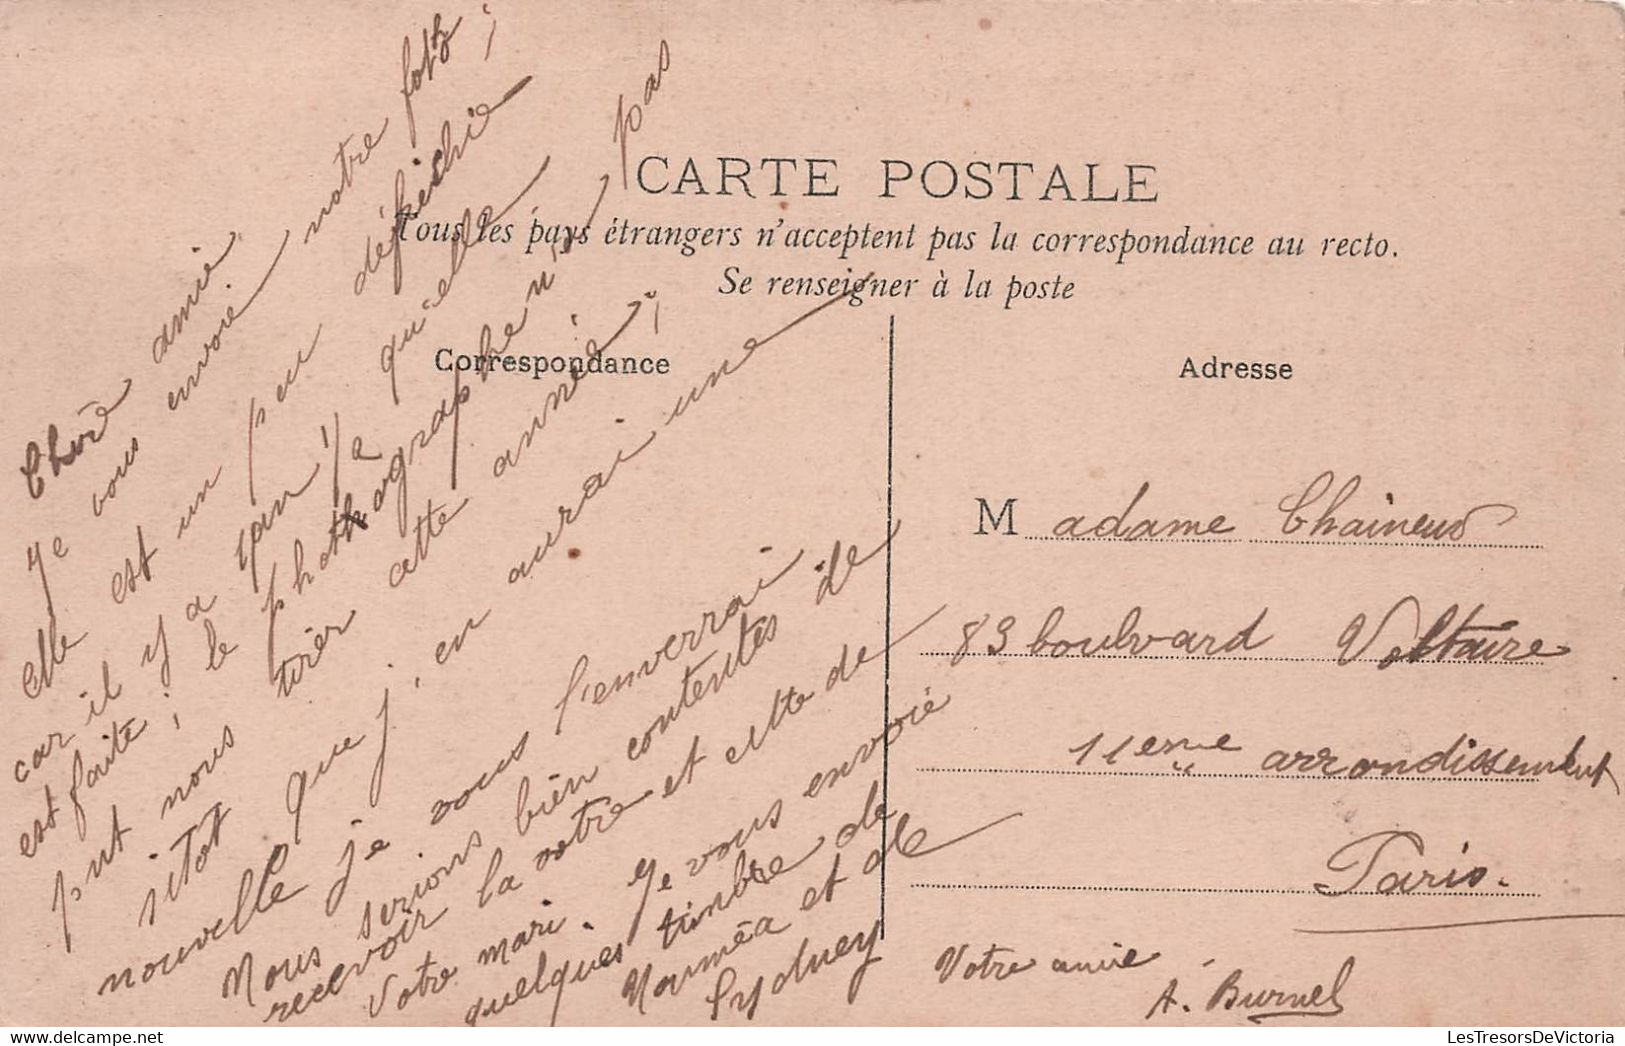 CARTE POSTALE
Tous les pays étrangers n'acceptent pas la correspondance au recto.
Se renseigner à la poste
Correspondance
Chère amie
Je vous envoie notre foto ;
elle est un peu défréchie
car il y a 1 an 1/2 qu'elle
est faite ; le photographe n'a pas
put nous tirer cette année ;
sitot que j'en aurai une
nouvelle je vous l'enverrai
Nous serions bien contentes de
recevoir la votre et celle de
votre mari. Je vous envoie
quelques timbre de
Nouméa et de
Sydney
Adresse
Madame Chaineux
83 boulvard Voltaire
11eme arrondissement
Paris.
Votre amie
A. Burnel
LesTresorsDeVictoria